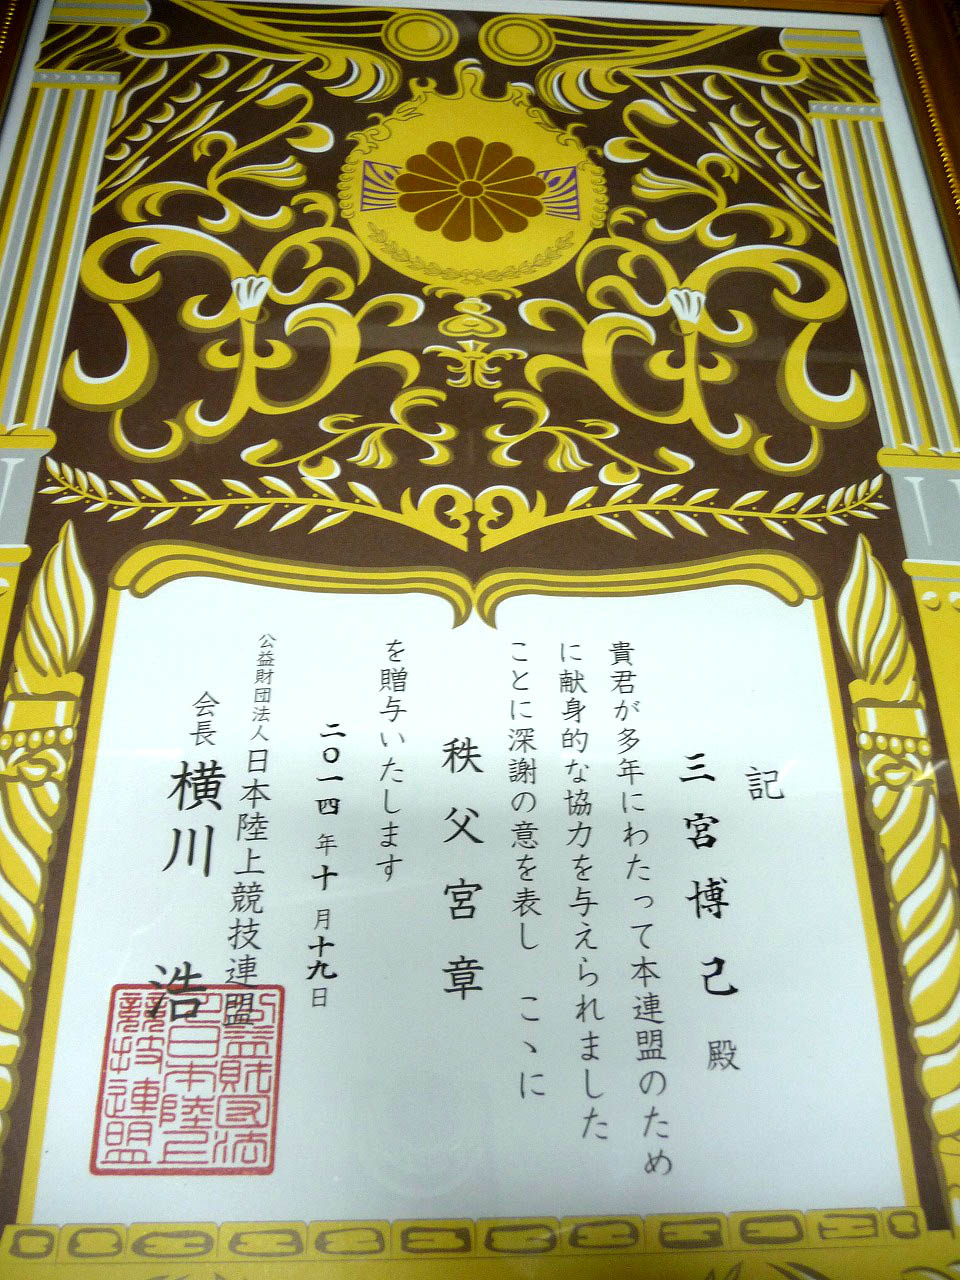 記
三宮博己 殿
貴君が多年にわたって本連盟のため
に献身的な協力を与えられました
ことに深謝の意を表し こゝに
秩父宮章
を贈与いたします
二〇一四年十月十九日
公益財団法人 日本陸上競技連盟
会長 横川 浩
公益財団法
人日本陸上
競技連盟